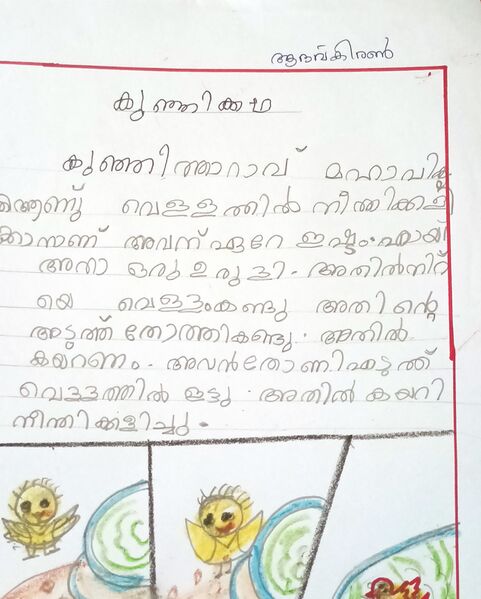 ആദവ്കിരൺ
കുഞ്ഞിക്കഥ
കുഞ്ഞിത്താറാവ് മഹാവികൃ
തിആണു് വെള്ളത്തിൽ നീന്തിക്കളി
ക്കാനാണ് അവന് ഏറേ ഇഷ്ടം.
അതാ ഒരു ഉരുളി. അതിൽനിറ
യെ വെള്ളംകണ്ടു അതിന്റെ
അടുത്ത് തോത്തികണ്ടു. അതിൽ
കയറണം. അവൻതോണിഎടുത്ത്
വെള്ളത്തിൽ ഇട്ടു. അതിൽ കയറി
നീന്തിക്കളിച്ചു.